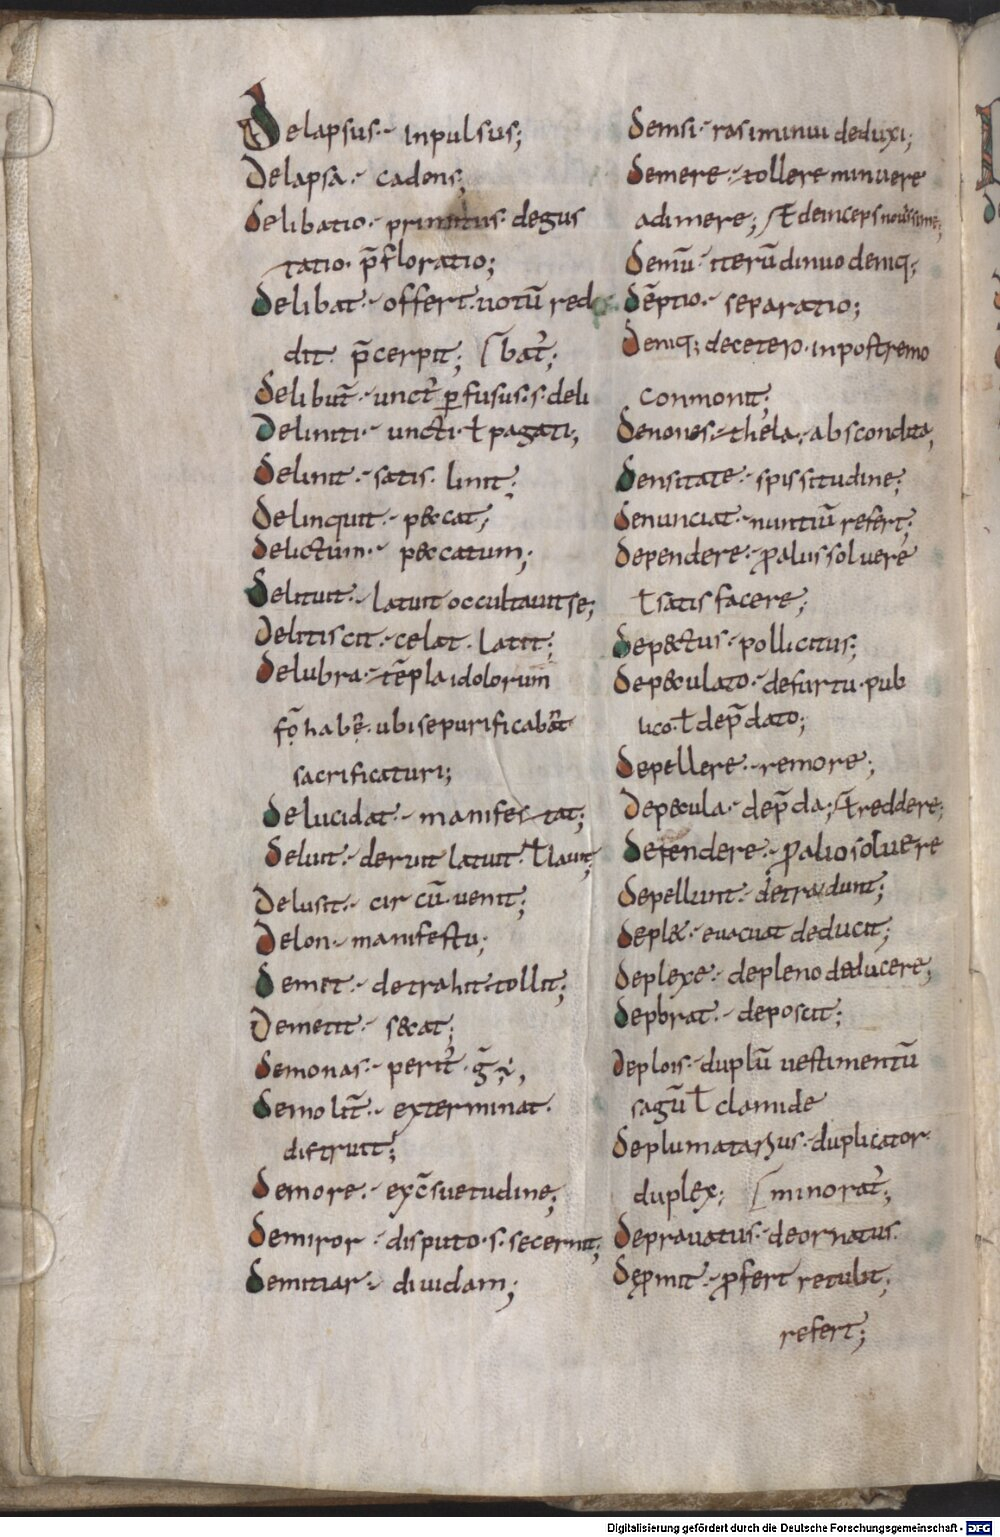 Delapsus·- Inpulsus;
Delapsa·- cadens;
Delibatio·- primitus· degus
tatio· p̄floratio;
Delibat·- offert· uotū red
dit· p̄cerpit; ſbat᷑;
Delibut᷑·- unct᷑ ꝑfusus·s·deli
Deliniti·- uncti· ł pagati;
Delinit·- satis· linit;
Delinquit·- peccat;
Delictum·- peccatum;
Delituit·- latuit occultauit se;
Delitiscit·- celat· latit;
Delubra·- tēpla idolorum
habē· ubi se purificabāt
sacrificaturi;
Delucidat·- manifestat;
Deluit·- deruit latuit· ł lauit;
Delusit·- circū·uenit;
Delon·- manifestu;
Demet·- detrahit·tollit;
Demetit·- secat;
Demonas·- perit᷑·
Demolit᷑·- exterminat·
distruit;
Demore·- ex c̄suetudine;
Demiror·- disputo·s·secernit;
Demitiar·- diuidam;
Demsi·- rasi minui deduxi;
Demere·- tollere minuere
adimere; deinceps nouissime;
Demū·- iterū dinuo deniq;
Dēptio·- separatio;
Deniq; decetero·inpostremo
conmonit;
Denones·- thela·abscondita;
Densitate·- spissitudine;
Denunciat·- nuntiū refert;
Dependere·- palus soluere
ł satis facere;
Depectus·- pollicitus;
Depeculato·- de furtu·pub
lico·ł dep̄dato;
Depellere·- remore;
Depecula·- dep̄da; reddere;
Defendere·- palio soluere
Depellunt·- detradunt;
Deplet·- euacuat deducit;
Deplexe·- depleno deducere;
Depbrat·- deposcit;
Deplois·- duplū uestimentū
sagū ł clamide
Deplumatarius·- duplicator
duplex; ſminorat᷑;
Deprauatus·- deornatus·
Depmit·- ꝓfert retulit;
refert;
Digitalisierung gefördert durch die Deutsche Forschungsgemeinschaft - DFG